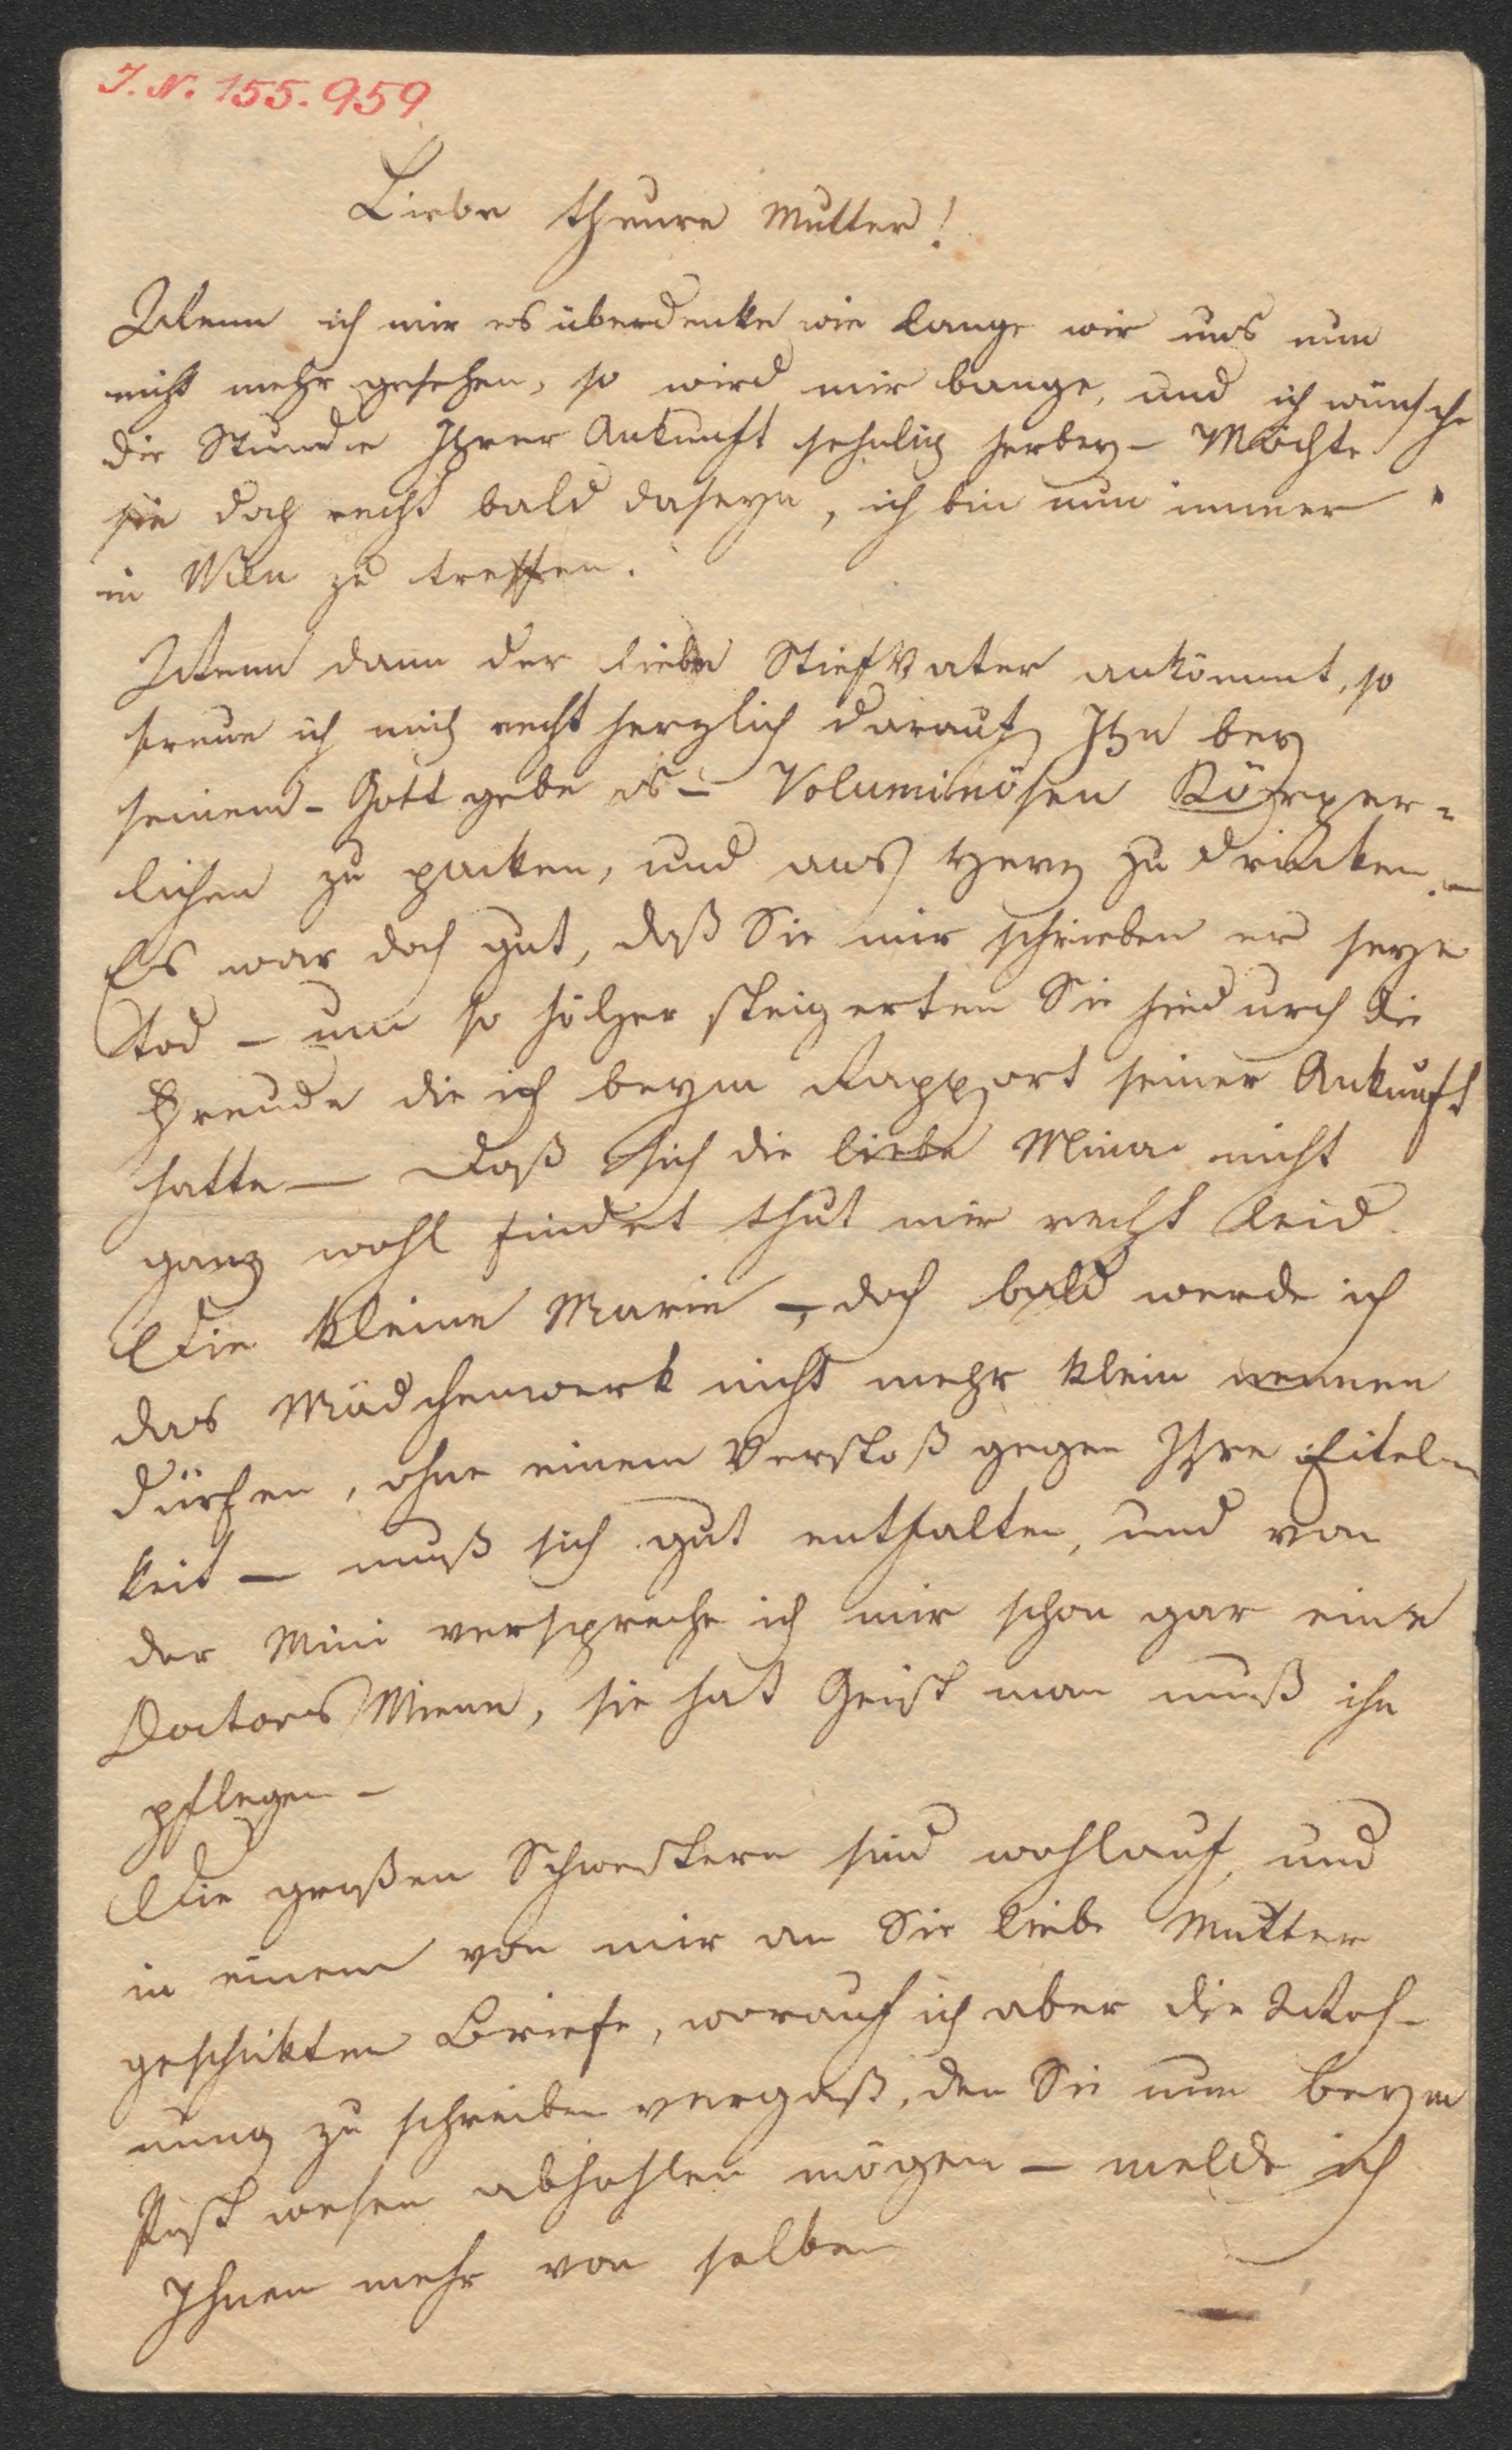 J. N. 155.959
Liebe theure Mutter!
Wenn ich mir es überdenke wie lange wir uns nun
nicht mehr gesehen, so wird mir bange, und ich wünsche
die Stunde Ihrer Ankunft sehnlich herbey – Möchte
sie doch recht bald daseyn, ich bin nun immer
in Wien zu treffen.
Wenn dann der liebe Stiefvater ankömmt, so
freue ich mich recht herzlich darauf Ihn bey
seinem – Gott gebe es – Voluminösen Körper=
lichen zu packen, und ans Herz zu drücken. –
Es war doch gut, daß Sie mir schrieben er seye
Tod – um so höher steigerten Sie hiedurch die
Freude die ich beym Rapport seiner Ankunft
hatte – Daß sich die liebe Mina nicht
ganz wohl findet thut mir recht leid.
Die kleine Marie –, doch bald werde ich
das Mädchenwerk nicht mehr klein nennen
dürfen, ohne einem Verstoß gegen Ihre Eitel=
keit – muß sich gut entfalten, und von
der Mini verspreche ich mir schon gar eine
Doctors Miene, sie hat Geist man muß ihn
pflegen –
Die großen Schwestern sind wohlauf, und
in einem von mir an Sie liebe Mutter
geschickten Briefe, worauf ich aber die Woh-
nung zu schreiben vergaß, den Sie nun beym
Postwesen abhohlen mögen – melde ich
Ihnen mehr von selben